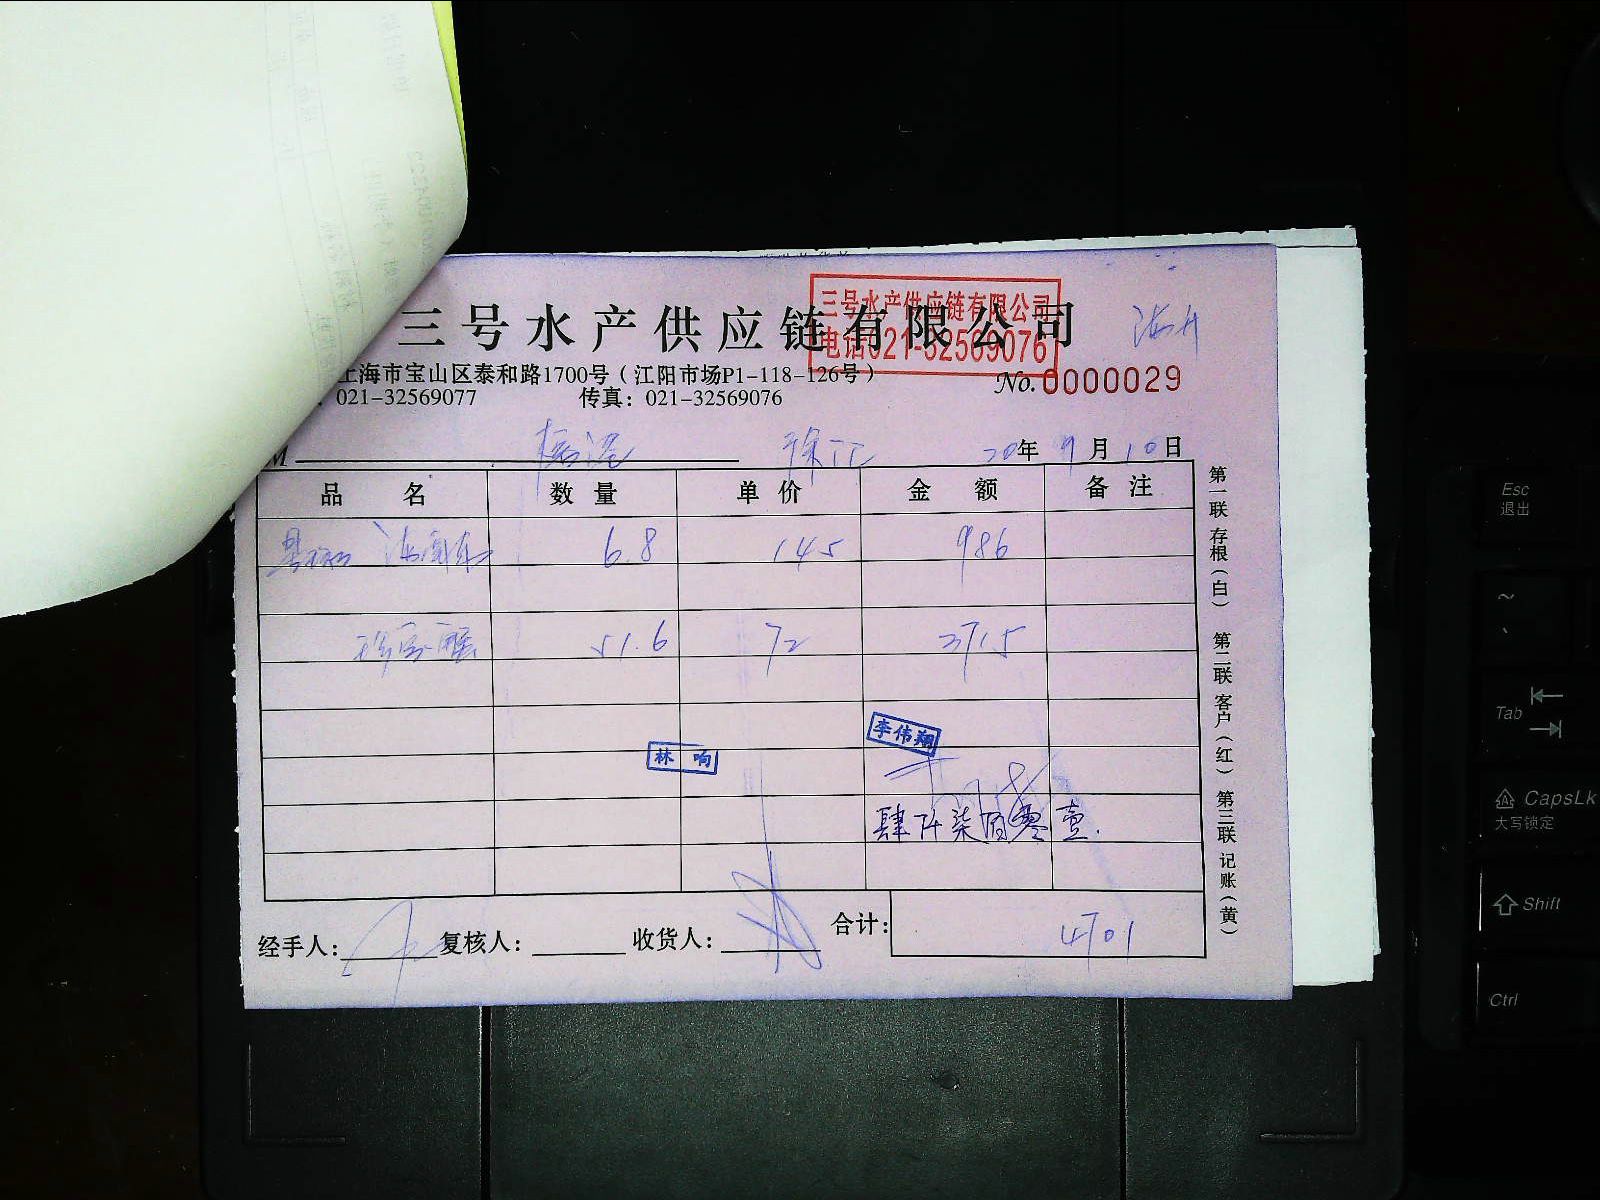 三号水产供应链有限公司
三号水产供应链有限公司
电话021-32569076
上海市宝山区泰和路1700号（江阳市场P1-118-126号）
No.0000029
021-32569077 传真：021-32569076
M 徐汇 20年9月10日
品名 数量 单价 金额 备注
6.8 145 986
珍宝蟹 51.6 72 3715
李伟翔
林响
肆仟柒佰零壹.
合计：4701
经手人： 复核人： 收货人：
第一联存根（白） 第二联客户（红） 第三联记账（黄）
Esc
退出
~
Tab
CapsLk
大写锁定
Shift
Ctrl